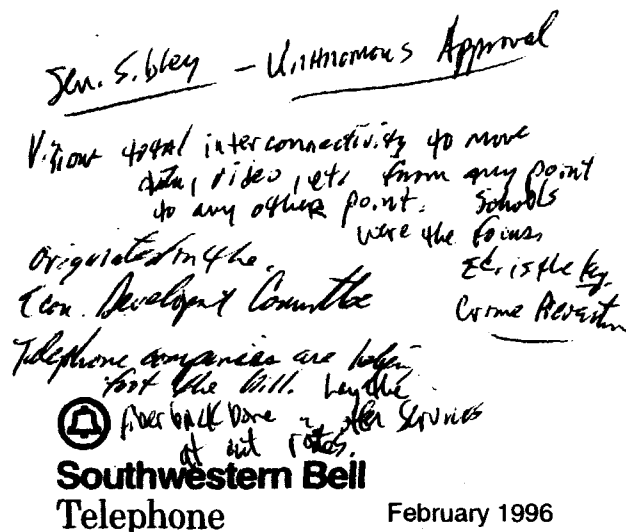 Sen. Sibley – Unanimous Approval
Vision total interconnectivity to move
data, video, etc from any point
to any other point. Schools
were the focus,
originated in the. Ed. is the key.
Econ. Development Committee Crime Prevention
Telephone companies are helping
foot the bill. Lay the
fiber back bone offer services
at cut rates.
Southwestern Bell
Telephone February 1996